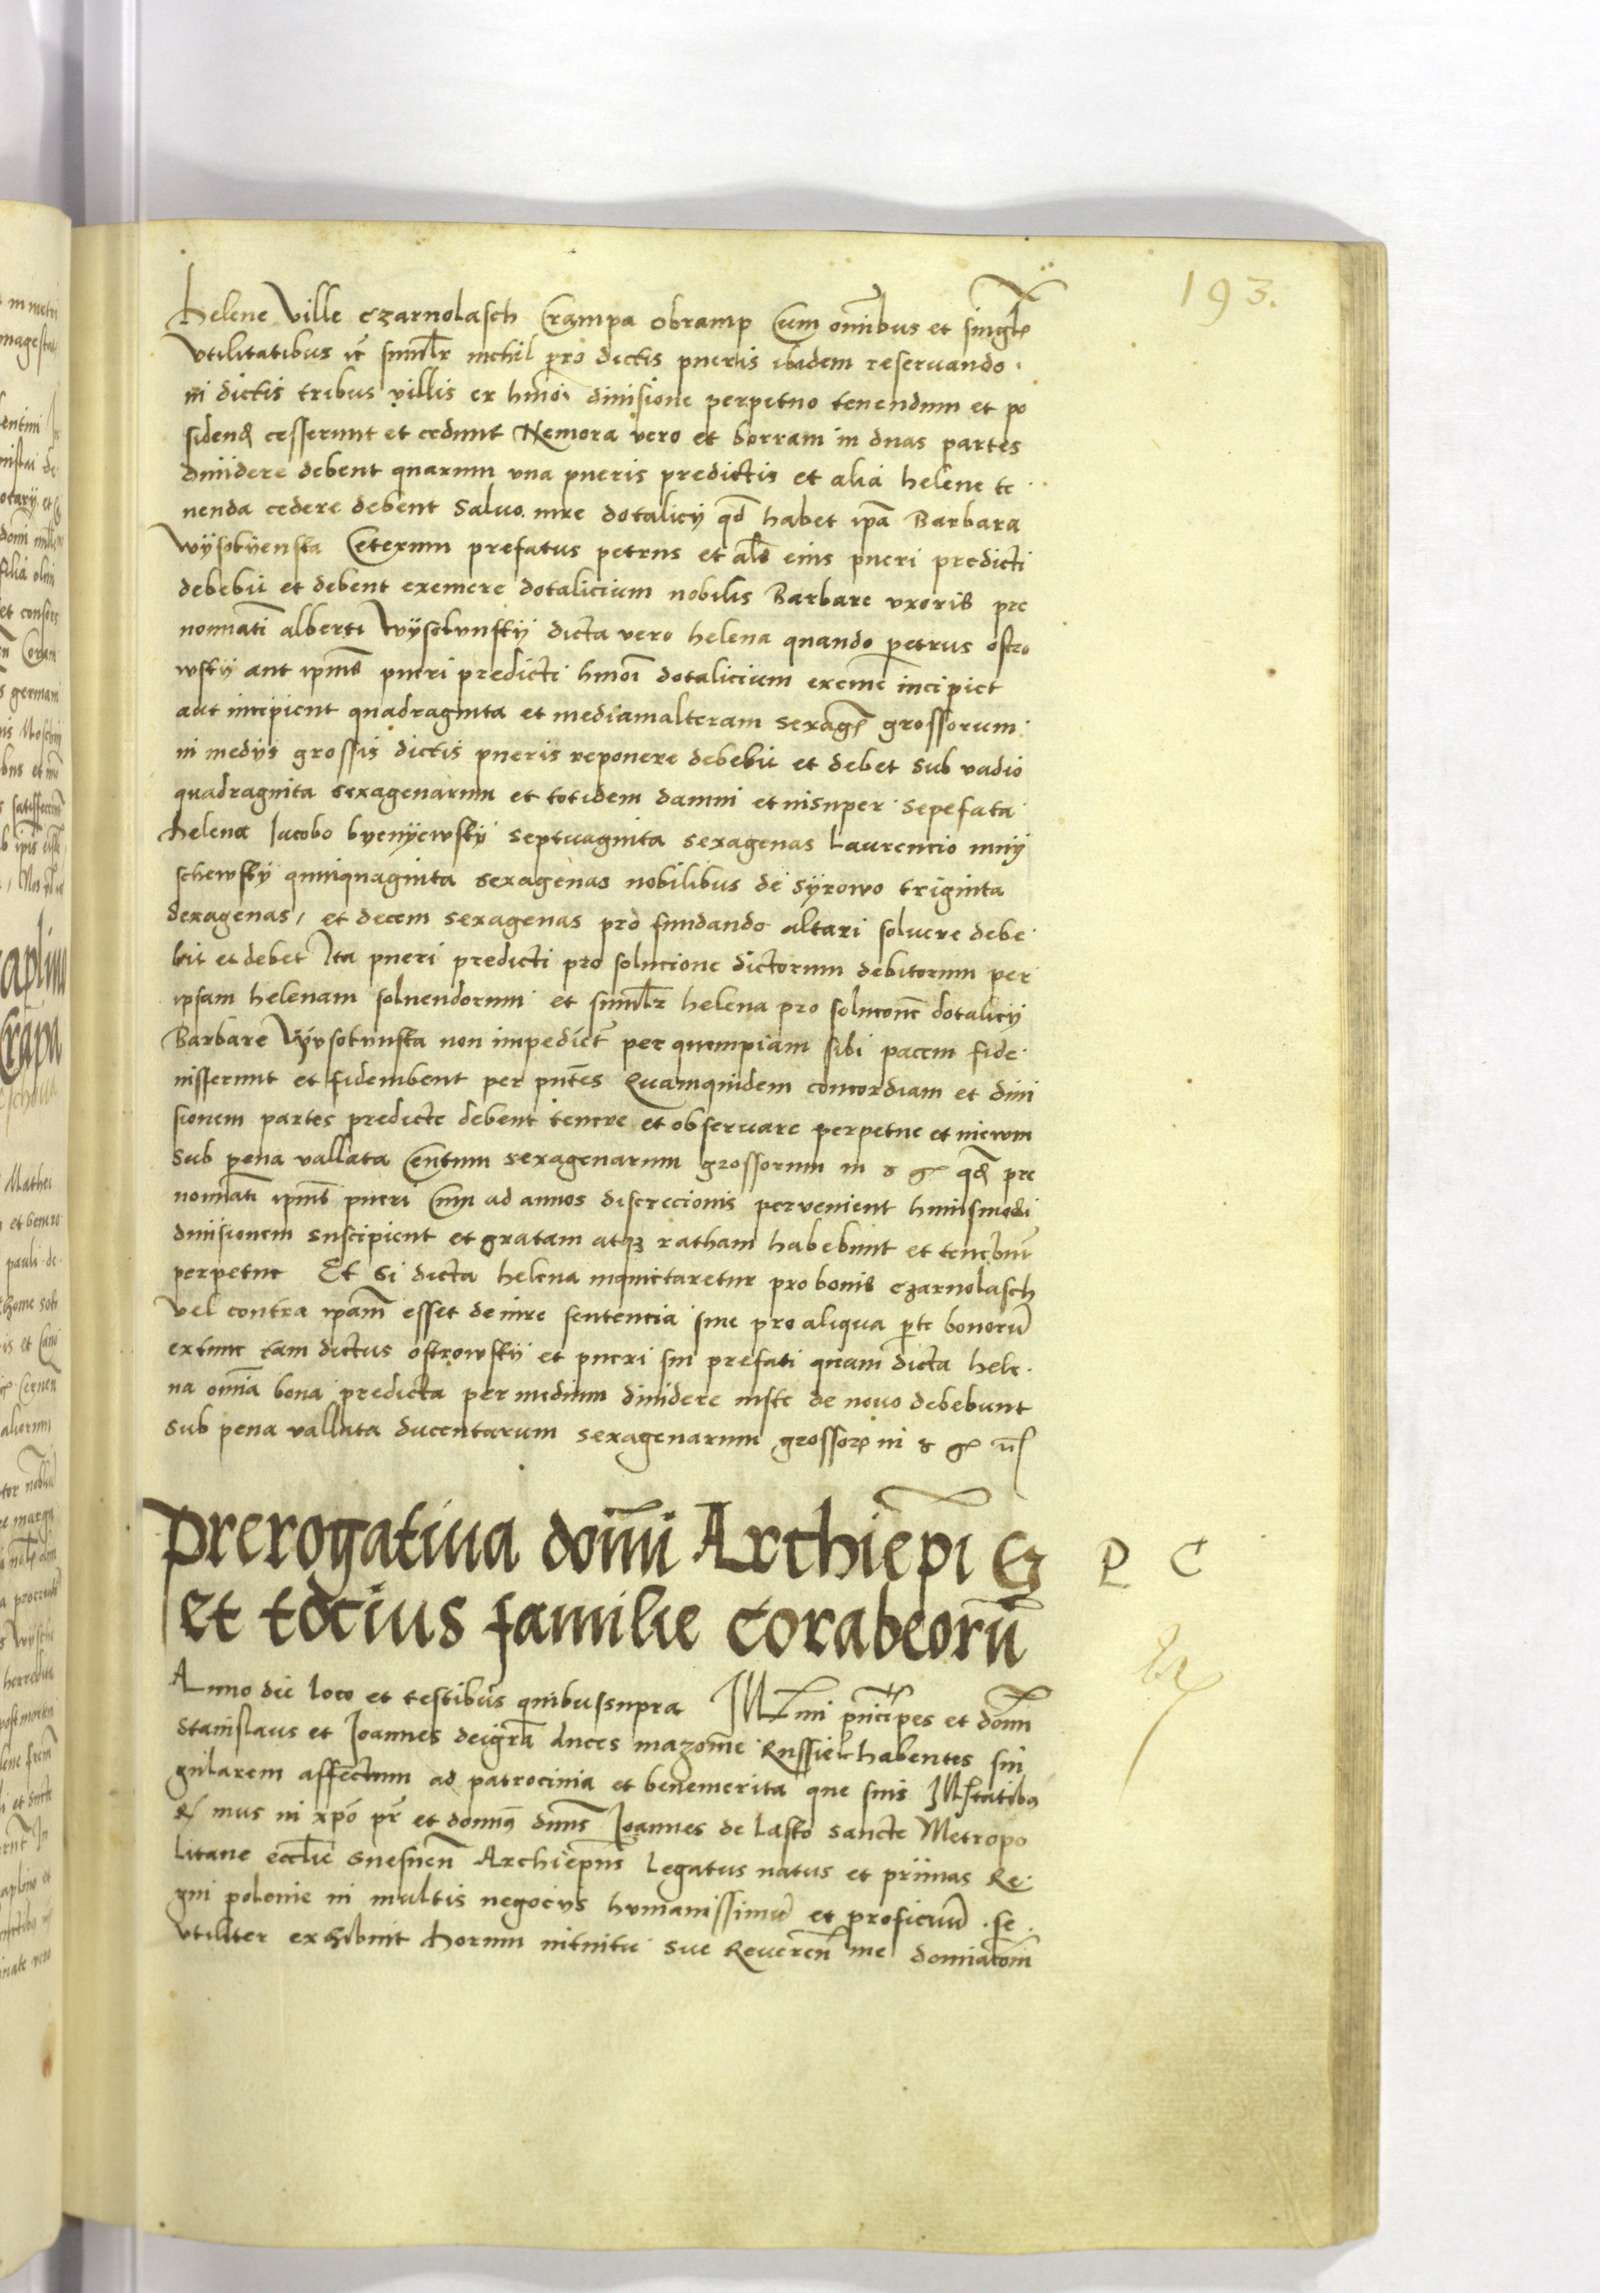 193.
Helene Ville Czarnolasch Crampa Obramp Cum om̅ibus et singl̅
vtilitatibus simil̅r nichil pro dictis pueris ibidem reseruando
in dictis tribus villis ex hmo̅i diuisione perpetuo tenendum et po
sidend̅ cesserunt et cedunt Nemora vero et borram in duas partes
diuidere debent quarum vna pueris predictis et alia helene te
nenda cedere debent Saluo iure dotalicÿ qd̅ habet ip̅a Barbara
Wÿsokÿenska Ceterum prefatus petrus et al̅s eius pueri predicti
debebit et debent exemere dotalicium nobilis Barbare vxoris pre
nominati alberti Wÿsokinskÿ dicta vero helena quando petrus ostro
wskÿ aut ipm̅et pueri predicti hmo̅i dotalicium exeme̅ incipiet
aut incipient quadraginta et mediamalteram sexage̅ grossorum
in medÿs grossis dictis pueris reponere debebit et debet sub vadio
quadraginta sexagenarum et totidem damni et insuper sepefata
helena Iacobo byenÿewskÿ septuaginta sexagenas Laurencio mnÿ
schewskÿ quinquaginta sexagenas nobilibus de sÿrowo triginta
sexagenas, et decem sexagenas pro fundando altari soluere debe
bit et debet Ita pueri predicti pro solucione dictorum debitorum per
ipsam helenam soluendorum et simil̅r helena pro soluc̅one dotalicÿ
Barbare Wÿsokinska non impedient̅ per quempiam sibi pacem fide
iusserunt et fideiubent per pn̅tes Quamquidem concordiam et diui
sionem partes predicte debent tenere et observare perpetue et in ewm
sub pena vallata Centum sexagenarum grossorum in qd̅ pre
nominati ipm̅et pueri Cum ad annos discrecionis pervenient huiusmodi
diuisionem suscipient et gratam atqꝫ ratham habebunt et tenebunt̅
perpetue Et si dicta helena inquietaretur pro bonis Czarnolasch
Vel contra ipam̅ esset de iure sentencia siue pro aliqua p̅te bonoru̅
extunc tam dictus ostrowskÿ et pueri sui prefati quam dicta hele
na om̅ia bona predicta per medium diuidere iuste de nouo debebunt
sub pena vallata ducentarum sexagenarum grossor̅ in
Prerogatiua domi̅ Archiepi̅ G P C
et tocius familie Corabeoru̅
Anno die loco et testibus quibus supra Ill̅mi pn̅cipes et domi̅
Stanislaus et Ioannes dei gra̅ duces mazouie̅ Russie habentes sin
gularem affectum ad patrocinia et benemerita que suis Ill̅tatibꝰ
R̅mus in xpo̅ pr̅ et domin̅ dnn̅s Ioannes de lasko sancte Metropo
litane eccl̅ie Gnesnen̅ Archiepus̅ Legatus natus et primas Re
gni polonie in multis negocÿs humanissimu̅ et proficuu̅ se
vtiliter exhibuit horum intuitu sue Reueren̅ me domiacom̅